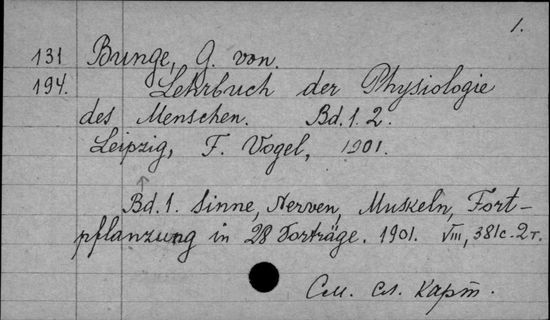 1.
131 Bunge, G. von.
194. Lehrbuch der Physiologie
des Menschen. Bd. 1. 2.
Leipzig, F. Vogel, 1901.
Bd. 1. Sinne, Nerven, Muskeln, Fort-
pflanzung in 28 Forträge. 1901. VIII, 381c.-2т.
См. сл. карт.